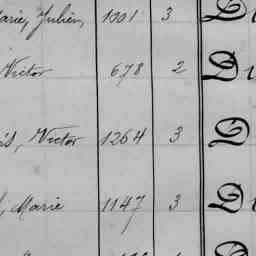 Marie, Julien, 1001 3 D
Victor 678 2 Du
Victor 1264 3 D
Marie 1147 3 Du
D